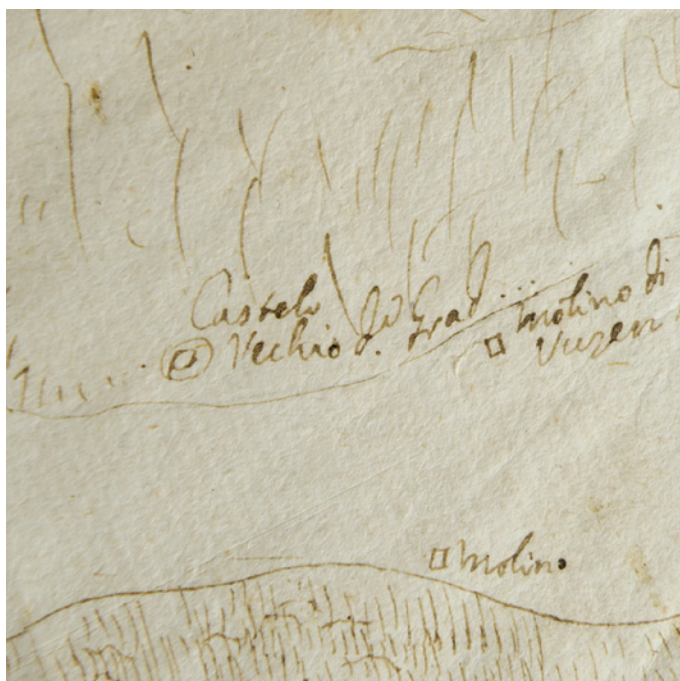 Castelo
Vechio d. Grad...
Molino di
Molino